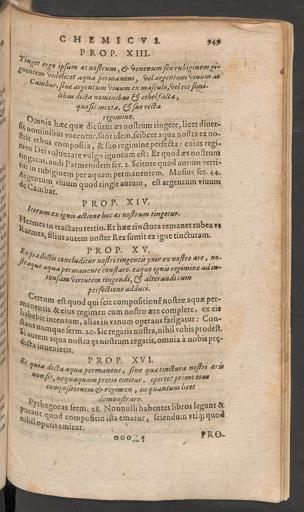 CHEMICVS. 949
PROP. XIII.
Tinget ergo ipsum æs nostrum, & venenum seu rubiginem gi-
gnentem videlicet aqua permanens, vel argentum viuum de
Cambar, siue argentum viuum ex masculo, vel res simi-
libus dicta nominibus & ethel facta,
quasi mixta, & suo recta
regimine.
Omnia hæc quæ dicūtur æs nostrum tingere, licet diuer-
sis nominibus vocentur, sunt idem, scilicet aqua nostra ex no-
stris rebus composita, & suo regimine perfecta: cuius regi-
men Dei voluntate vulgo ignotum est: Et quod æs nostrum
tingatur, audi Patmendem ser. 2. Scitote quod aurum verte-
re in rubiginem per aquam permanentem. Mosius ser. 44.
Argentum viuum quod tingit aurum, est argentum viuum
de Cambar.
PROP. XIV.
Iterum ex ignis actione hoc æs nostrum tingetur.
Hermes in tractatu tertio. Et hæc tinctura remanet rubea vt
Rarmes, filius autem noster Rex sumit ex igne tincturam.
PROP. XV.
Ex prædictis concluditur nostri tingentis yxir ex nostro ære, no-
straque aqua permanente constare. eaque ignis regimine ad in-
tensam virtutem tingendi, & alterandi cum
perfectione adduci.
Certum est quod qui scit compositionē nostræ aquæ per-
manentis & eius regimen cum nostro ære complete, ex eis
habebit intentum, alias in vanum operans fatigatur: Con-
stans namque serm. 20. Sic regatis nostra, nihil vobis prodest.
Et autem aqua nostra æs nostrum regatis, omnia à nobis præ-
dicta inuenietis.
PROP. XVI.
Et quia dicta aqua permanens, sine qua tinctura nostri æris
non fit, nequaquam precio emitur, oportet primo eius
compositionem & regimen, in quantum licet
demonstrare.
Pythagoras serm. 28. Nonnulli habentes libros legunt &
putant quod compositio ista ematur, sciendum vtiq; quod
nihil operis emitur.
ooo 5 PRO.